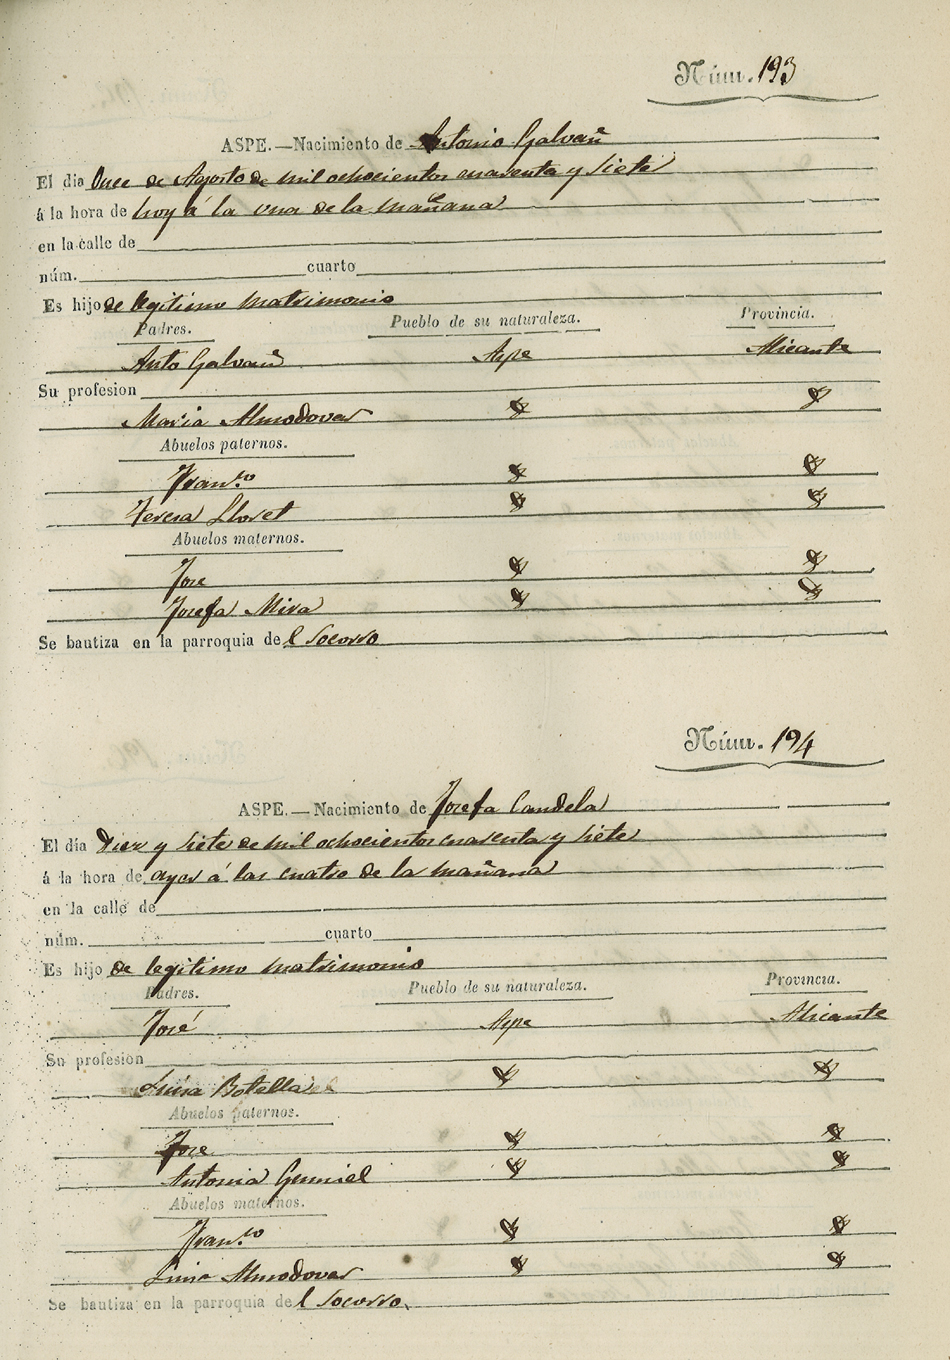 Núm. 193
ASPE.—Nacimiento de Antonio Galvañ
El dia Once de Agosto de mil ochocientos cuarenta y siete
á la hora de hoy á la una de la mañana
en la calle de
núm. cuarto
Es hijo de legitimo matrimonio
Padres. Pueblo de su naturaleza. Provincia.
Anto Galvañ Aspe Alicante
Su profesion
Maria Almodovar
Abuelos paternos.
Franco
Teresa Lloret
Abuelos maternos.
Jose
Josefa Mira
Se bautiza en la parroquia del Socorro
Núm. 194
ASPE.—Nacimiento de Josefa Candela
El dia Diez y siete de mil ochocientos cuarenta y siete
á la hora de ayer á las cuatro de la mañana
en la calle de
núm. cuarto
Es hijo de legitimo matrimonio
Padres. Pueblo de su naturaleza. Provincia.
José Aspe Alicante
Su profesion
Luisa Botella
Abuelos paternos.
Jose
Antonia
Abuelos maternos.
Franco
Luisa Almodovar
Se bautiza en la parroquia del Socorro.